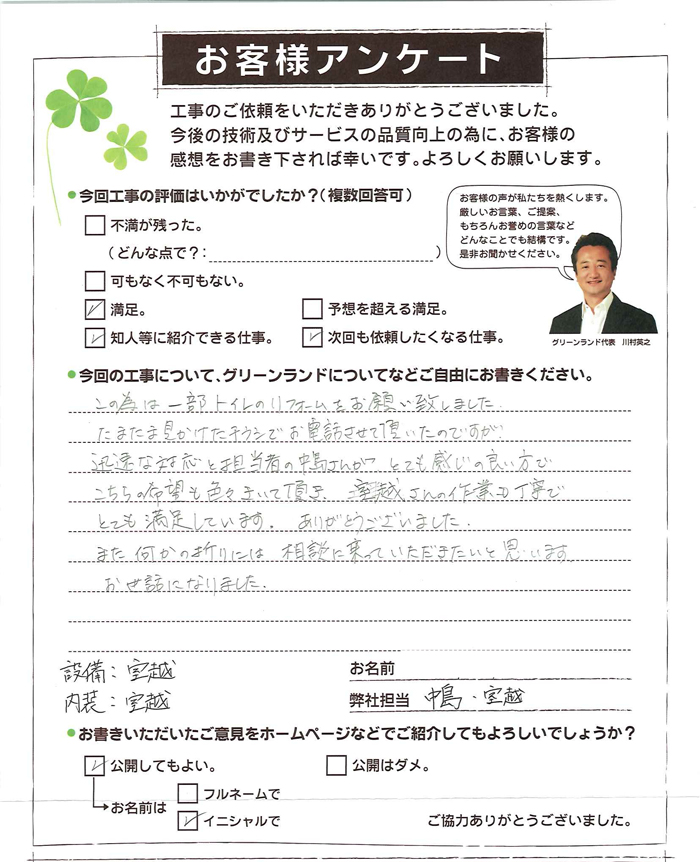 お客様アンケート
工事のご依頼をいただきありがとうございました。
今後の技術及びサービスの品質向上の為に、お客様の
感想をお書き下されば幸いです。よろしくお願いします。
今回工事の評価はいかがでしたか?(複数回答可)
不満が残った。
(どんな点で?: )
可もなく不可もない。
満足。
予想を超える満足。
知人等に紹介できる仕事。
次回も依頼したくなる仕事。
お客様の声が私たちを熱くします。
厳しいお言葉、ご提案、
もちろんお誉めの言葉など
どんなことでも結構です。
是非お聞かせください。
グリーンランド代表 川村英之
今回の工事について、グリーンランドについてなどご自由にお書きください。
この為は一部トイレのリフォームをお願い致しました。
たまたま見かけたチラシでお電話させて頂いたのですが
迅速な対応と担当者の中島さんが、とても感じの良い方で
こちらの希望も色々きいて頂き 室越さんの作業も丁寧で
とても満足しています。 ありがとうございました。
また何かの折りには 相談に乗っていただきたいと思います
お世話になりました。
設備: 室越
内装: 室越
お名前
弊社担当 中島・室越
お書きいただいたご意見をホームページなどでご紹介してもよろしいでしょうか?
公開してもよい。
公開はダメ。
お名前は
フルネームで
イニシャルで
ご協力ありがとうございました。